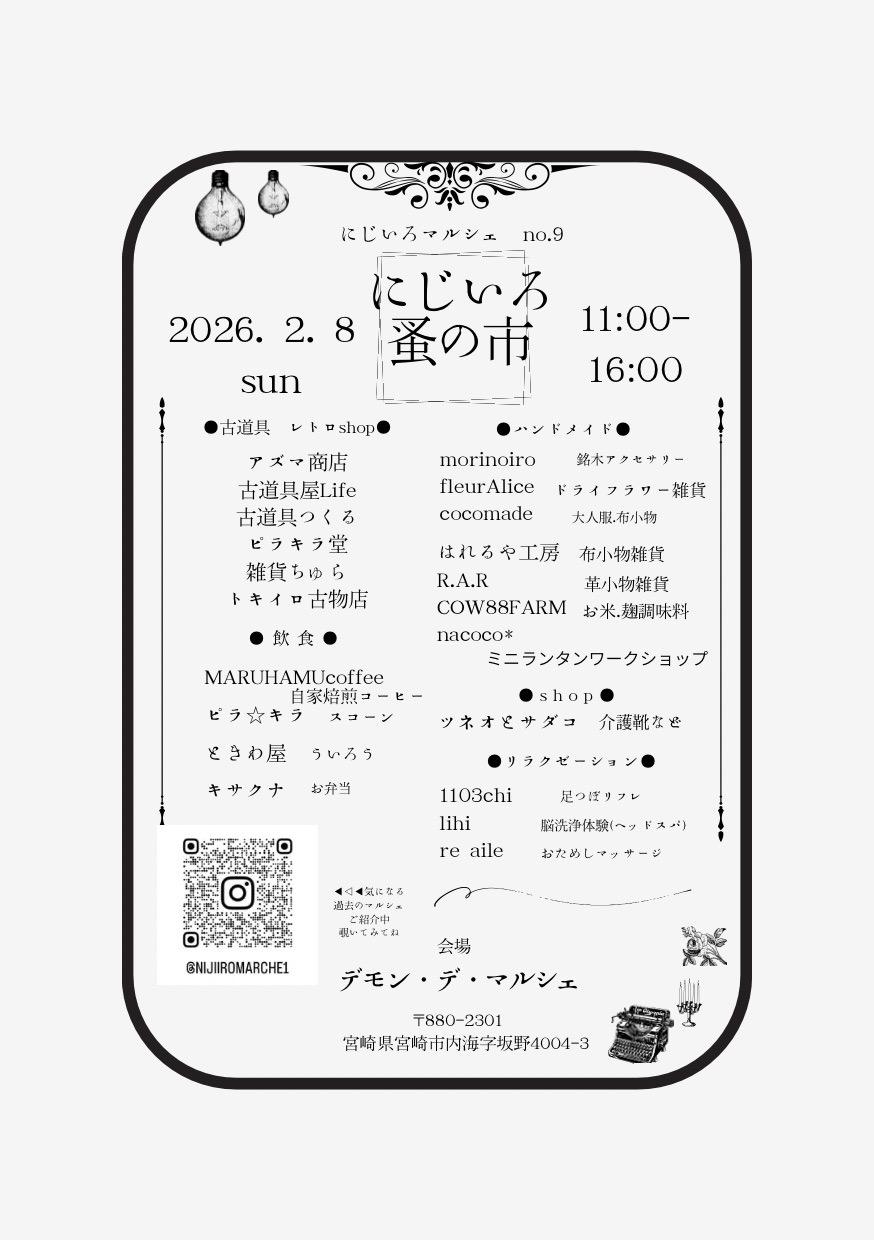 にじいろマルシェ no.9
にじいろ
蚤の市
2026. 2. 8
sun
11:00-
16:00
●古道具 レトロshop●
アズマ商店
古道具屋Life
古道具つくる
ピラキラ堂
雑貨ちゅら
トキイロ古物店
● 飲 食 ●
MARUHAMUcoffee
自家焙煎コーヒー
ピラ☆キラ スコーン
ときわ屋 ういろう
キサクナ お弁当
●ハンドメイド●
morinoiro 銘木アクセサリー
fleurAlice ドライフラワー雑貨
cocomade 大人服.布小物
はれるや工房 布小物雑貨
R.A.R 革小物雑貨
COW88FARM お米.麹調味料
nacoco*
ミニランタンワークショップ
● s h o p ●
ツネオとサダコ 介護靴など
●リラクゼーション●
1103chi 足つぼリフレ
lihi 脳洗浄体験(ヘッドスパ)
re aile おためしマッサージ
@NIJIIROMARCHE1
◀◁◀気になる
過去のマルシェ
ご紹介中
覗いてみてね
会場
デモン・デ・マルシェ
〒880-2301
宮崎県宮崎市内海字坂野4004-3